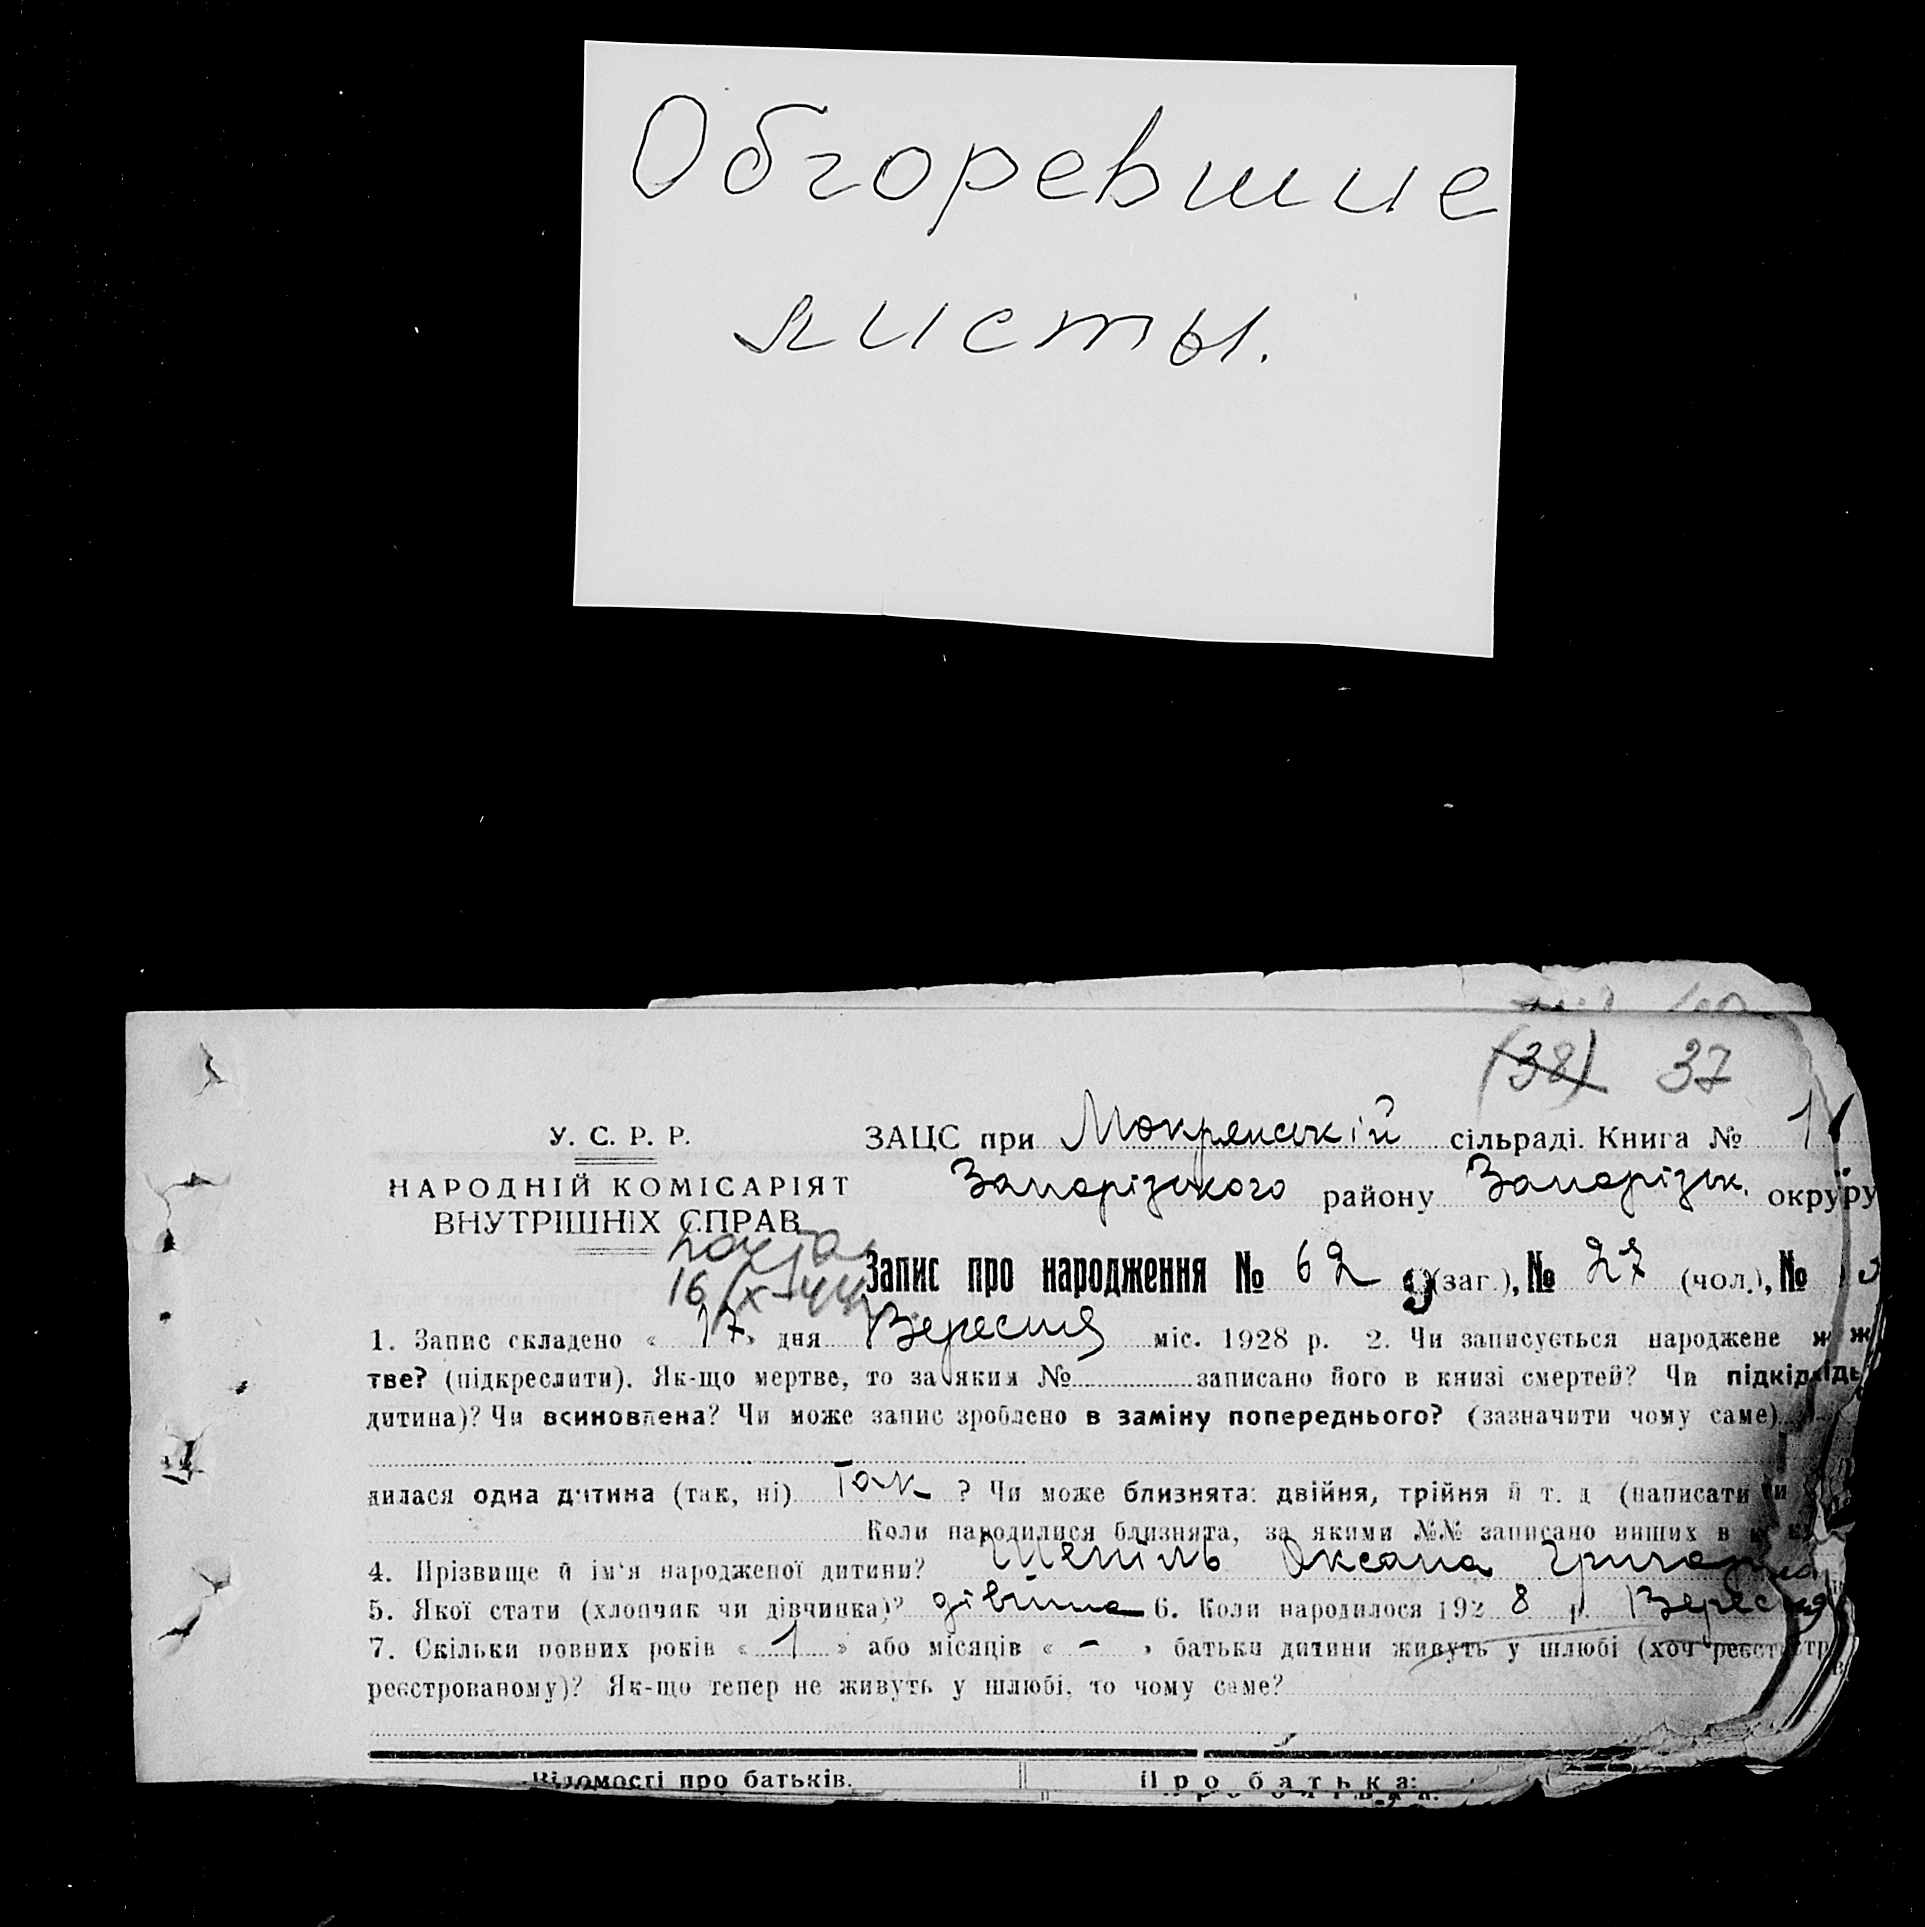 Обгоревшие
листы.
(38) 37
У. С. Р. Р.
НАРОДНІЙ КОМІСАРІЯТ
ВНУТРІШНІХ СПРАВ
16/X-44
ЗАЦС при Мокрянській сільраді. Книга № 1
Запорізького району Запорізьк. округу
Запис про народження № 62 (заг.), № 27 (чол.), №
1. Запис складено « 17 » дня Вересня міс. 1928 р. 2. Чи записується народжене
тве? (підкреслити). Як-що мертве, то за яким № записано його в книзі смертей? Чи
дитина)? Чи всиновлена? Чи може запис зроблено в заміну попереднього? (зазначити чому саме)
дилася одна дитина (так, ні) Так ? Чи може близнята: двійня, трійня й т. д (написати
Коли народилися близнята, за якими №№ записано инших в
4. Прізвище й ім'я народженої дитини? Оксана
5. Якої стати (хлопчик чи дівчинка)? дівчина 6. Коли народилося 1928 р. Вересня
7. Скільки повних років « 1 » або місяців « - » батьки дитини живуть у шлюбі (хоч
реєстрованому)? Як-що тепер не живуть у шлюбі, то чому саме?
Відомості про батьків.
Про батька: